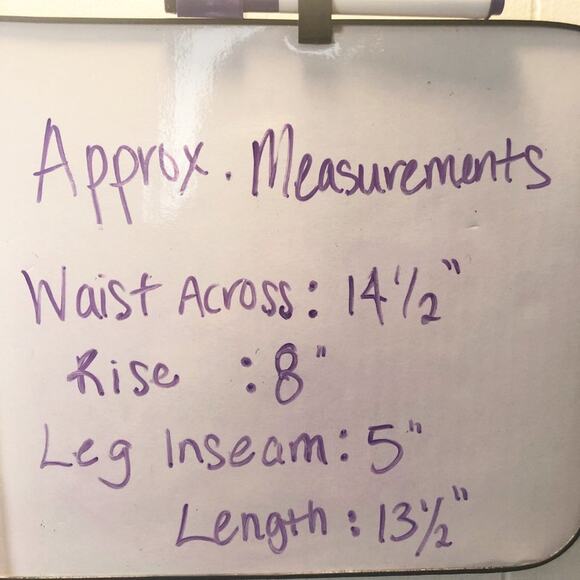 Approx. Measurements
Waist Across: 14 1/2"
Rise : 8"
Leg Inseam: 5"
Length: 13 1/2"